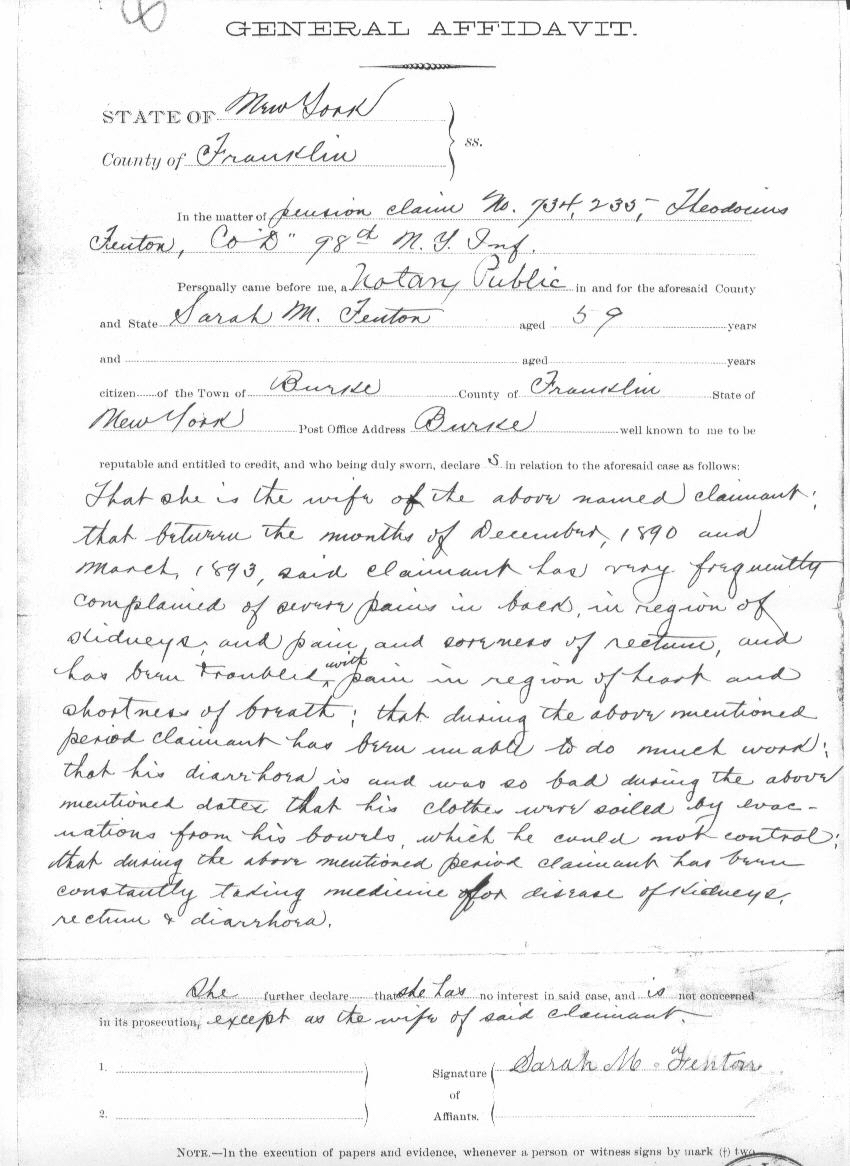 GENERAL AFFIDAVIT.
STATE OF New York
ss.
County of Franklin
In the matter of pension claim No. 734,235, Theodocius
Fenton, Co "D" 98th N. Y. Inf.
Personally came before me, a Notary Public in and for the aforesaid County
and State Sarah M. Fenton aged 59 years
and aged years
citizen of the Town of Burke County of Franklin State of
New York Post Office Address Burke well known to me to be
reputable and entitled to credit, and who being duly sworn, declare s in relation to the aforesaid case as follows:
That she is the wife of the above named claimant;
that between the months of December, 1890 and
March, 1893, said claimant has very frequently
complained of severe pains in back, in region of
kidneys, and pain and soreness of rectum, and
has been troubled with pain in region of heart and
shortness of breath; that during the above mentioned
period claimant has been unable to do much work;
that his diarrhoea is and was so bad during the above
mentioned dates that his clothes were soiled by evac-
uations from his bowels, which he could not control;
that during the above mentioned period claimant has been
constantly taking medicine for disease of kidneys,
rectum & diarrhoea.
She further declare that she has no interest in said case, and is not concerned
in its prosecution, except as the wife of said claimant.
1. Signature Sarah M. Fenton
of
2. Affiants.
NOTE.—In the execution of papers and evidence, whenever a person or witness signs by mark (†) two